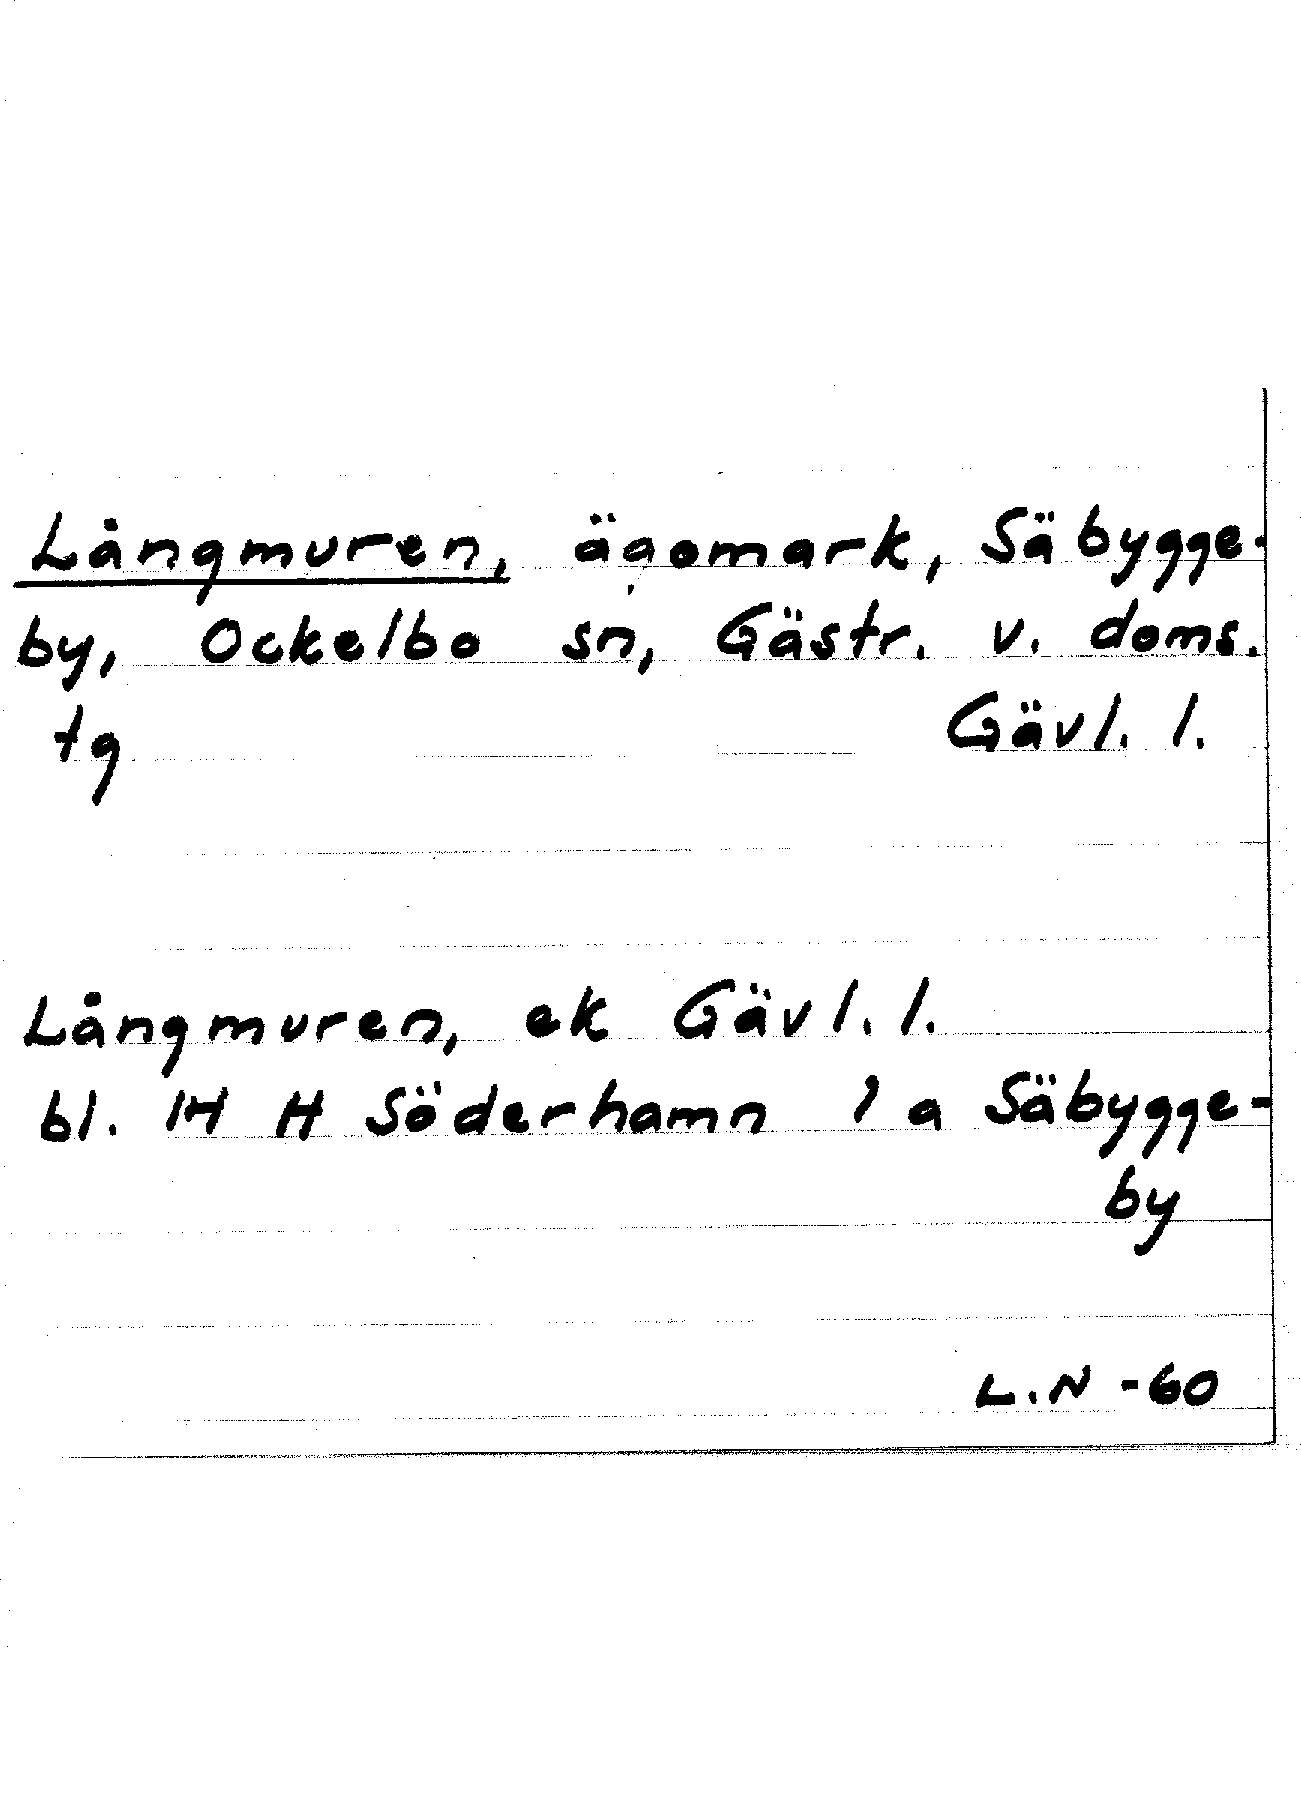 Långmuren, ägomark, Säbygge-
by, Ockelbo sn, Gästr. v. doms.
tg Gävl. l.
Långmuren, ek Gävl. l.
bl. 14 H Söderhamn 1 a Säbygge-
by
L.N -60